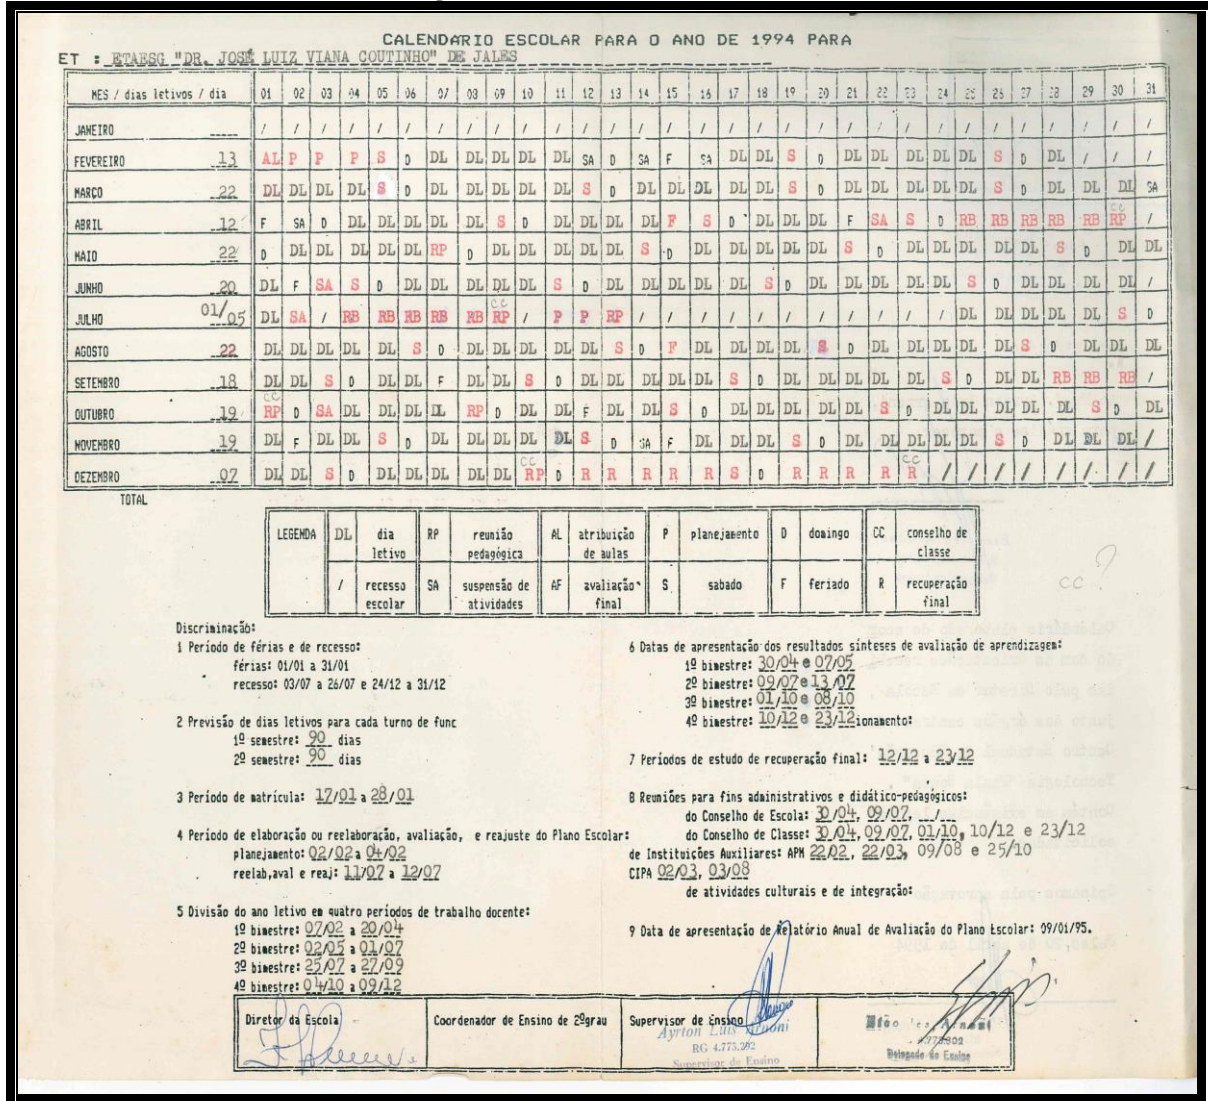 CALENDARIO ESCOLAR PARA O ANO DE 1994 PARA
ET : ETAESG "DR. JOSÉ LUIZ VIANA COUTINHO" DE JALES
MES / dias letivos / dia 01 02 03 04 05 06 07 08 09 10 11 12 13 14 15 16 17 18 19 20 21 22 23 24 25 26 27 28 29 30 31
JANEIRO / / / / / / / / / / / / / / / / / / / / / / / / / / / / / / /
FEVEREIRO 13 AL P P P S D DL DL DL DL DL SA D SA F SA DL DL S D DL DL DL DL DL S D DL / / /
MARÇO 22 DL DL DL DL S D DL DL DL DL DL S D DL DL DL DL DL S D DL DL DL DL DL S D DL DL DL SA
ABRIL 12 F SA D DL DL DL DL DL S D DL DL DL DL F S D DL DL DL F SA S D RB RB RB RB RB CC RP /
MAIO 22 D DL DL DL DL DL RP D DL DL DL DL DL S D DL DL DL DL DL S D DL DL DL DL DL S D DL DL
JUNHO 20 DL F SA S D DL DL DL DL DL S D DL DL DL DL DL S D DL DL DL DL DL S D DL DL DL DL /
JULHO 01/05 DL SA / RB RB RB RB RB CC RP / P P RP / / / / / / / / / / / DL DL DL DL DL S D
AGOSTO 22 DL DL DL DL DL S D DL DL DL DL DL S D F DL DL DL DL S D DL DL DL DL DL S D DL DL DL
SETEMBRO 18 DL DL S D DL DL F DL DL S D DL DL DL DL DL S D DL DL DL DL DL S D DL DL RB RB RB /
OUTUBRO 19 CC RP D SA DL DL DL DL RP D DL DL F DL DL S D DL DL DL DL DL S D DL DL DL DL DL S D DL
NOVEMBRO 19 DL F DL DL S D DL DL DL DL DL S D SA F DL DL DL S D DL DL DL DL DL S D DL DL DL /
DEZEMBRO 07 DL DL S D DL DL DL DL DL CC RP D R R R R R S D R R R R CC R / / / / / / / /
TOTAL
LEGENDA DL dia letivo RP reunião pedagógica AL atribuição de aulas P planejamento D domingo CC conselho de classe
/ recesso escolar SA suspensão de atividades AF avaliação final S sabado F feriado R recuperação final
cc ?
Discriminação:
1 Periodo de férias e de recesso:
férias: 01/01 a 31/01
recesso: 03/07 a 26/07 e 24/12 a 31/12
2 Previsão de dias letivos para cada turno de func
1º semestre: 90 dias
2º semestre: 90 dias
3 Periodo de matrícula: 17/01 a 28/01
4 Período de elaboração ou reelaboração, avaliação, e reajuste do Plano Escolar:
planejamento: 02/02 a 04/02
reelab,aval e reaj: 11/07 a 12/07
5 Divisão do ano letivo em quatro periodos de trabalho docente:
1º bimestre: 07/02 a 20/04
2º bimestre: 02/05 a 01/07
3º bimestre: 25/07 a 27/09
4º bimestre: 04/10 a 09/12
6 Datas de apresentação dos resultados sinteses de avaliação de aprendizagem:
1º bimestre: 30/04 e 07/05
2º bimestre: 09/07 e 13/07
3º bimestre: 01/10 e 08/10
4º bimestre: 10/12 e 23/12ionamento:
7 Periodos de estudo de recuperação final: 12/12 a 23/12
8 Reuniões para fins administrativos e didático-pedagógicos:
do Conselho de Escola: 30/04, 09/07, __/__
do Conselho de Classe: 30/04, 09/07, 01/10, 10/12 e 23/12
de Instituições Auxiliares: APM 22/02, 22/03, 09/08 e 25/10
CIPA 02/03, 03/08
de atividades culturais e de integração:
9 Data de apresentação de Relatório Anual de Avaliação do Plano Escolar: 09/01/95.
Diretor da Escola
Coordenador de Ensino de 2ºgrau
Supervisor de Ensino
Ayrton Luis Arnoni
RG 4.775.292
Supervisor de Ensino
Delegado de Ensino